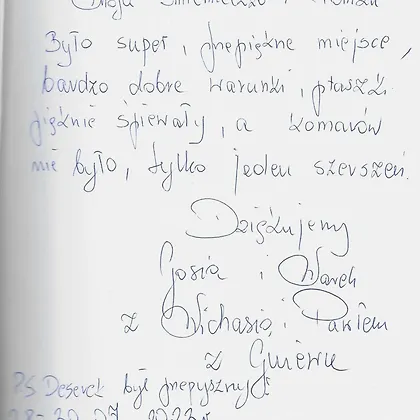 Było super, przepiękne miejsce,
bardzo dobre warunki, ptaszki
pięknie śpiewały, a komarów
nie było, tylko jeden szerszeń.
Dziękujemy
Gosia i Marek
z Michasią i
z Gniewu
PS Deserek był przepyszny!
28-30.07.2023 r.